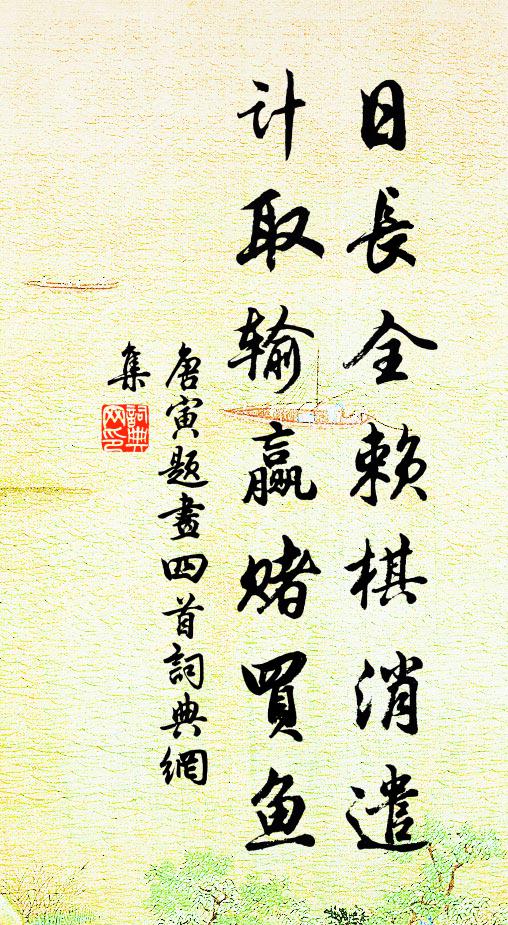 日長全賴棋消遣
计取输贏赌買鱼
唐寅题畫四首詞典網
集
詞典
网印